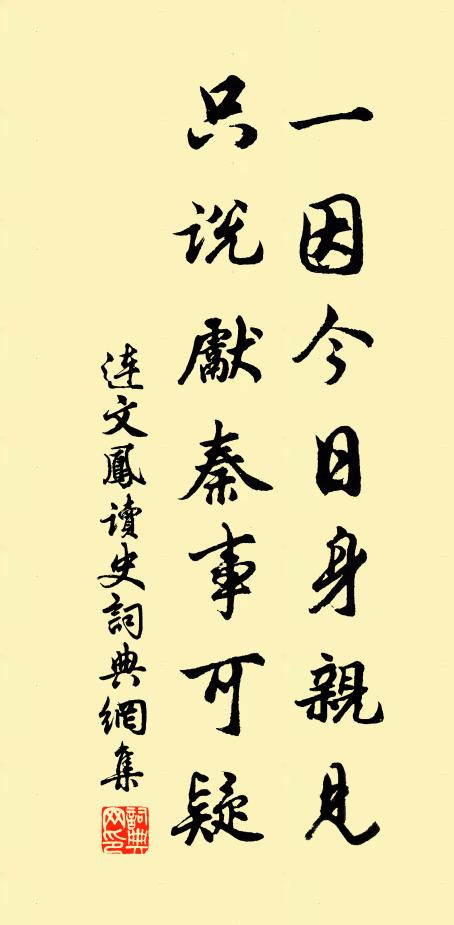 一因今日身親見
只說獻秦事可疑
連文鳳讀史詞典網集
詞典網印